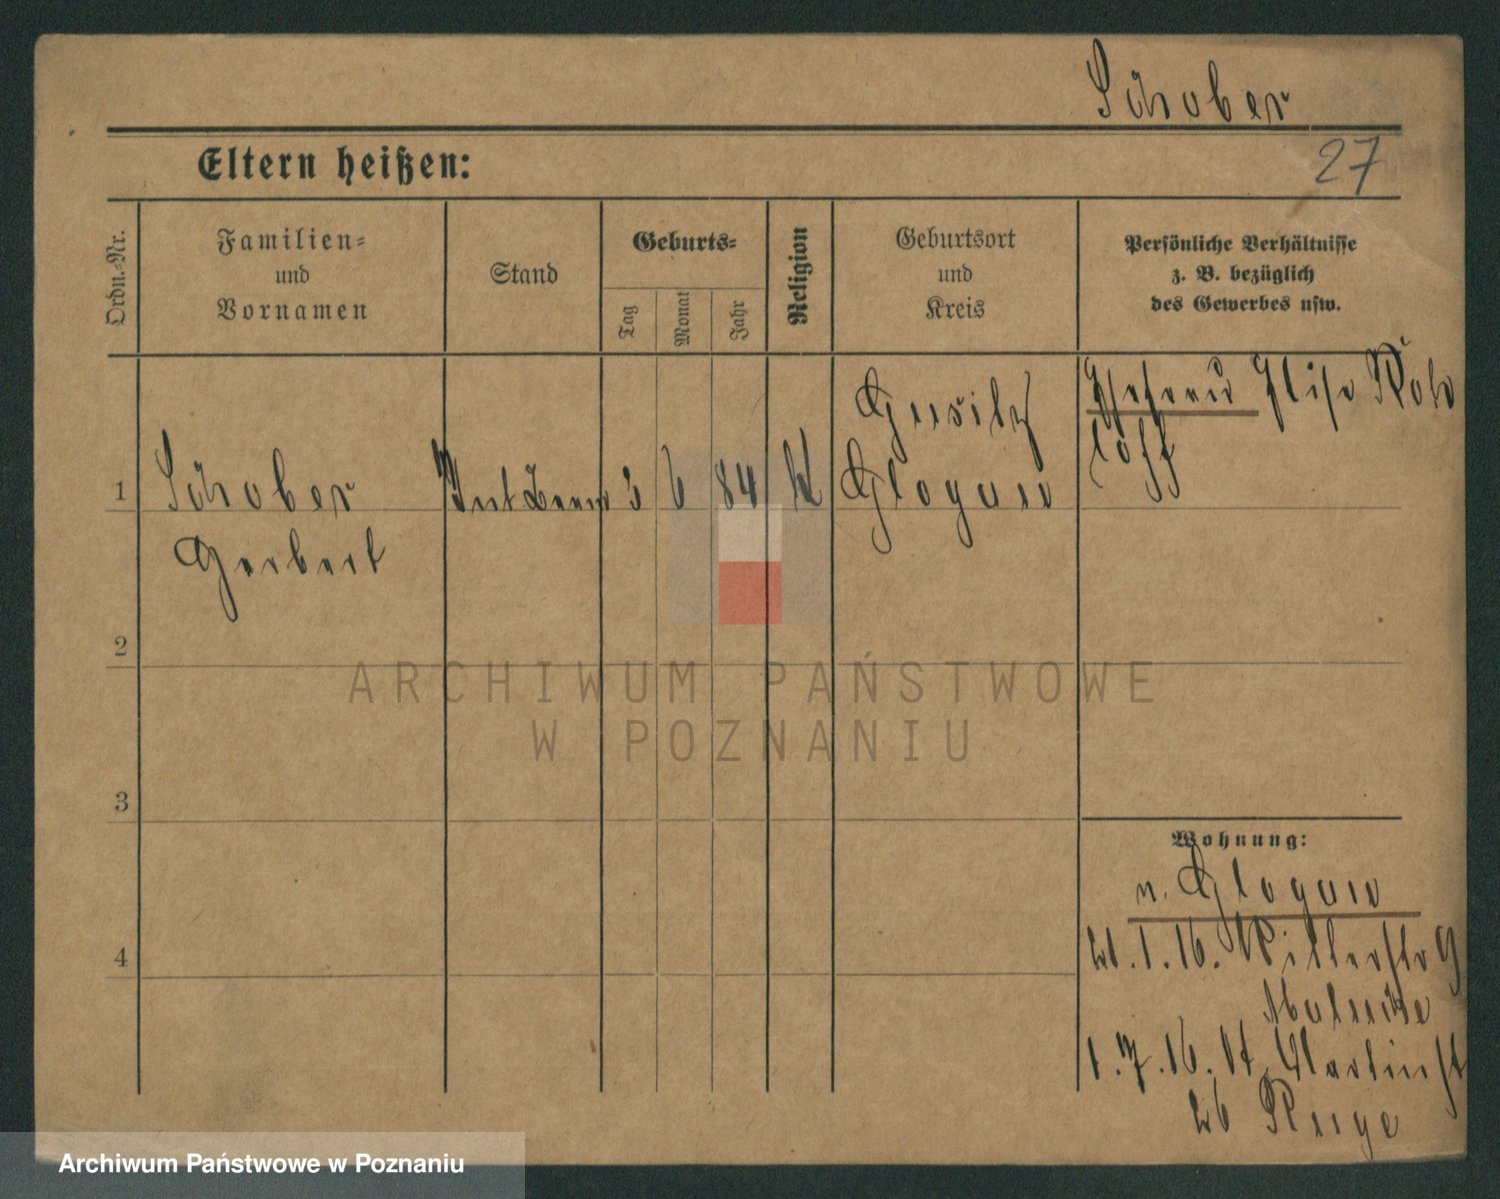 Schober
27
Eltern heißen:
Ordn.-Nr.
Familien-
und
Vornamen
Stand
Geburts-
Tag
Monat
Jahr
Religion
Geburtsort
und
Kreis
Persönliche Verhältnisse
z. B. bezüglich
des Gewerbes usw.
1
Schober
3
6
84
k
Glogau
Ehefrau
2
ARCHIWUM PAŃSTWOWE
W POZNANIU
3
Wohnung:
n. Glogau
4
1.16. Ritterstr 9
1.7.16. St. Martinst
Archiwum Państwowe w Poznaniu